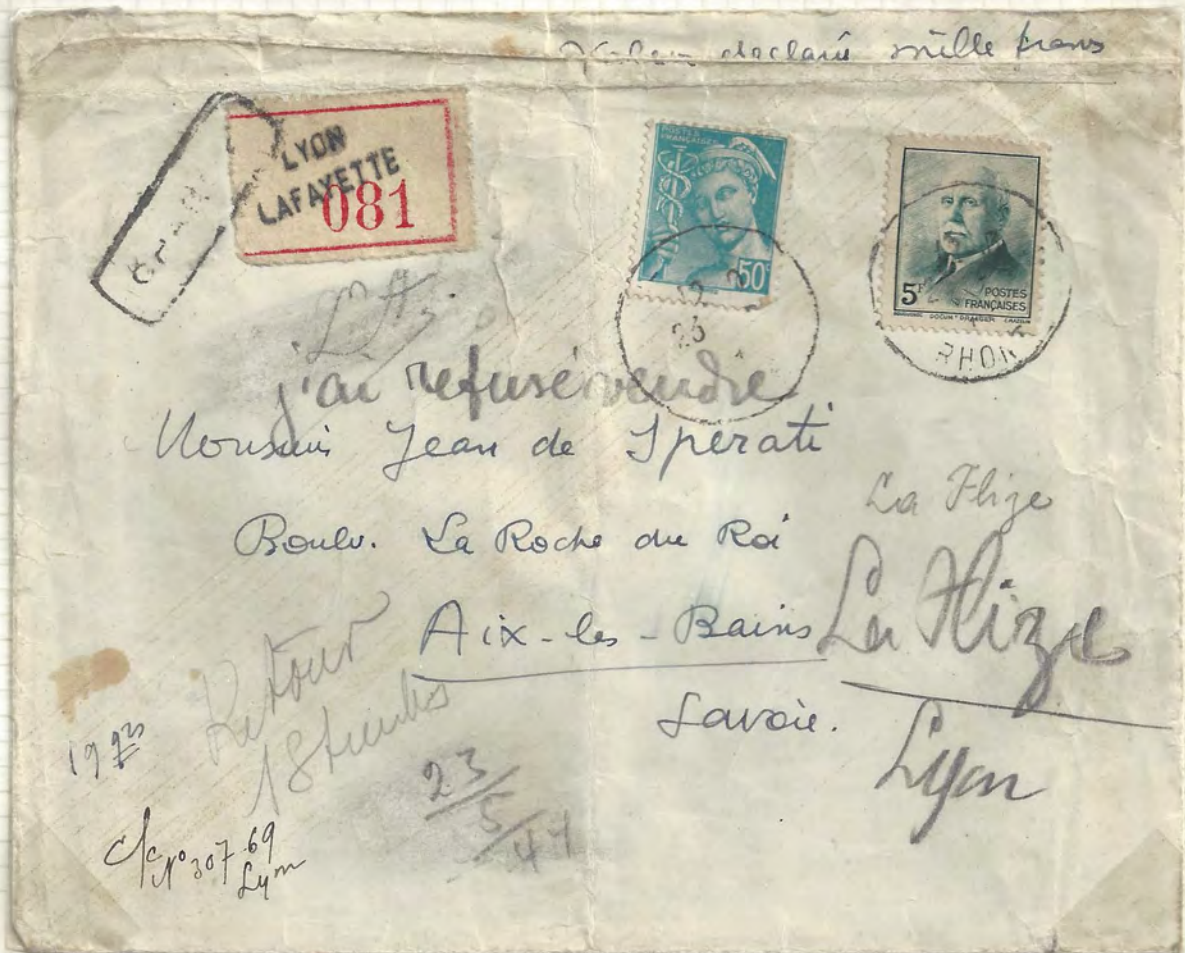 déclaré mille francs
LYON
LAFAYETTE
081
POSTES
FRANÇAISES
50c
5F
POSTES
FRANÇAISES
RHON
j'ai refusé vendre
Monsieur Jean de Sperati
Boulv. La Roche du Roi
Aix-les-Bains
Savoie.
La Flize
La Flize
Lyon
Retour
18 timbres
19 grs
23/5/44
c/c N° 307.69
Lyon